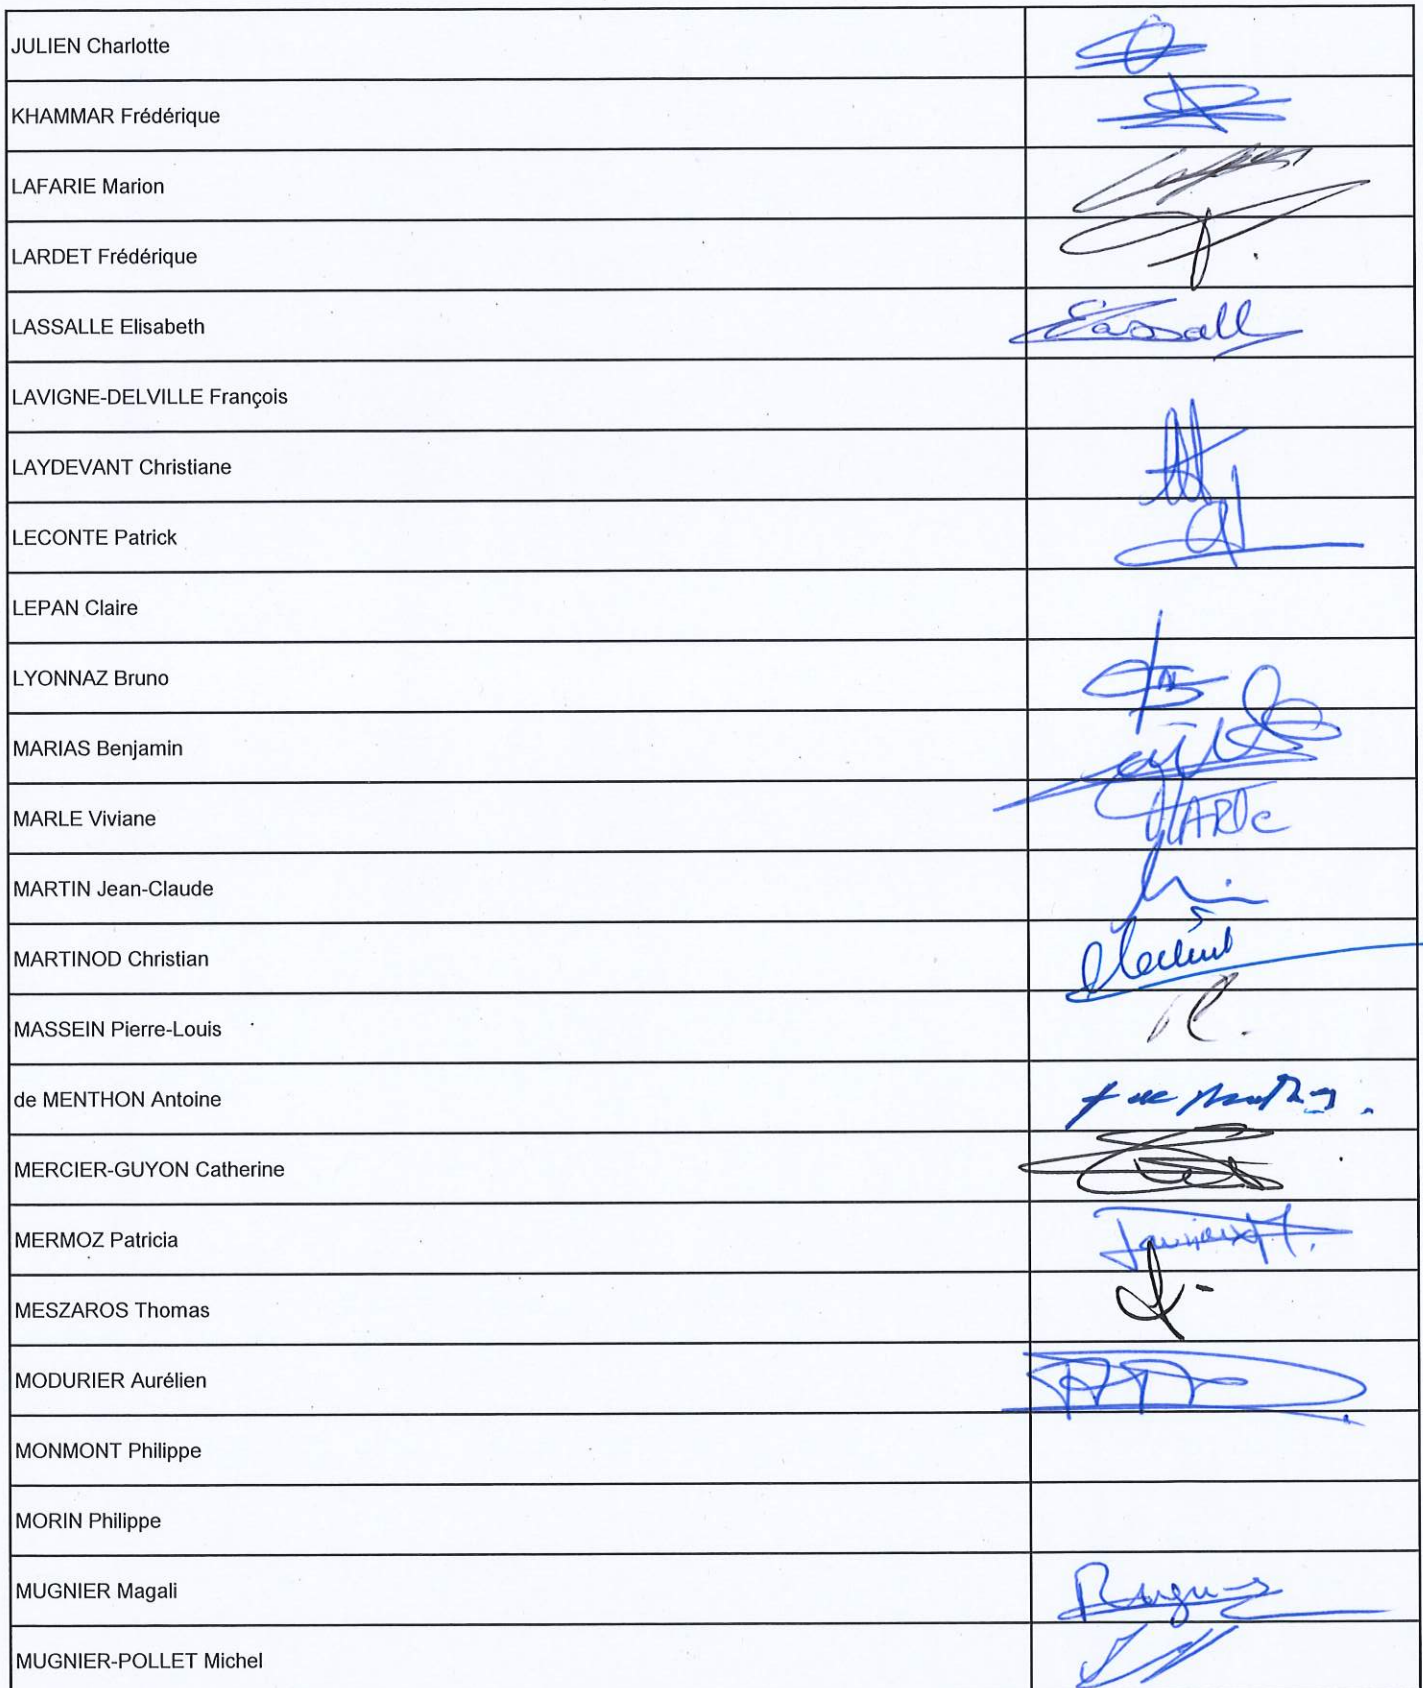 JULIEN Charlotte
KHAMMAR Frédérique
LAFARIE Marion
LARDET Frédérique
LASSALLE Elisabeth
LAVIGNE-DELVILLE François
LAYDEVANT Christiane
LECONTE Patrick
LEPAN Claire
LYONNAZ Bruno
MARIAS Benjamin
MARLE Viviane
MARTIN Jean-Claude
MARTINOD Christian
MASSEIN Pierre-Louis
de MENTHON Antoine
MERCIER-GUYON Catherine
MERMOZ Patricia
MESZAROS Thomas
MODURIER Aurélien
MONMONT Philippe
MORIN Philippe
MUGNIER Magali
MUGNIER-POLLET Michel